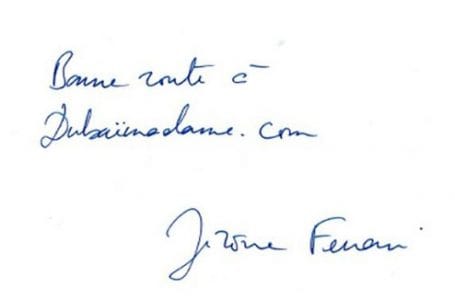 Bonne route à
Dubaïmadame.com
Jérôme Ferrari